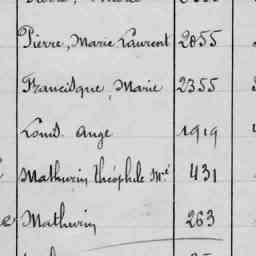 Pierre, Marie Laurent 2855
Francisque, Marie 2355
Louis Ange 1919
Mathurin, Théophile Mie 431
Mathurin 263